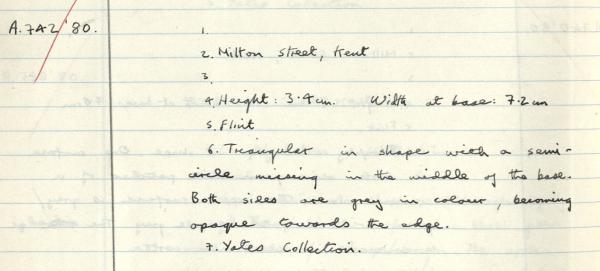 A.7A2 '80.
1.
2. Milton Street, Kent
3.
4. Height: 3.4cm. Width at base: 7.2cm
5. Flint
6. Triangular in shape with a semi-
circle missing in the middle of the base.
Both sides are grey in colour, becoming
opaque towards the edge.
7. Yates Collection.